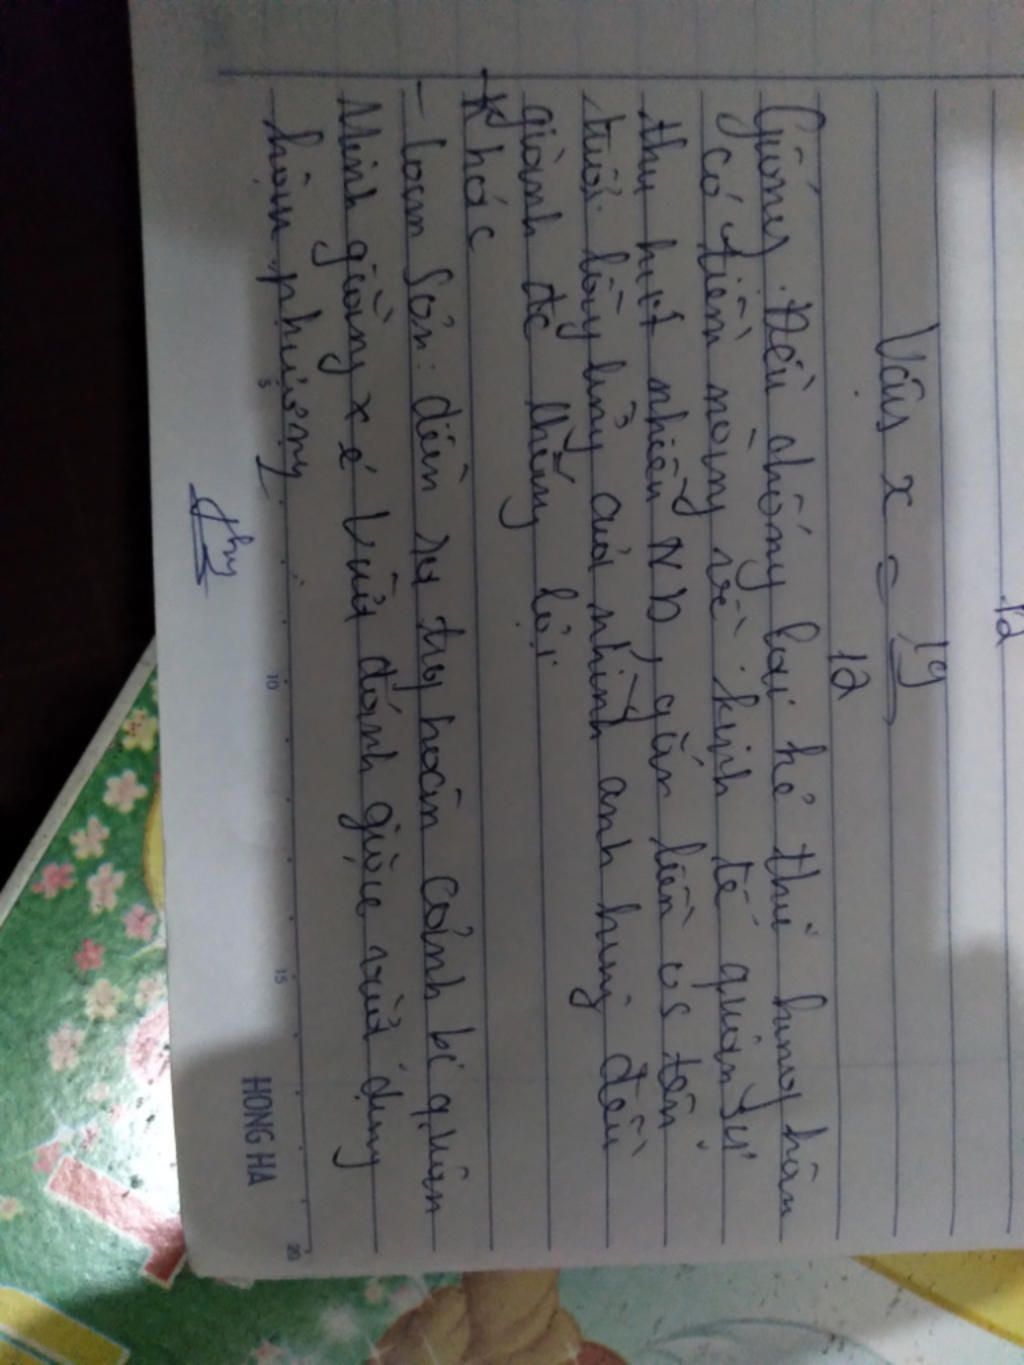 12
Vậy x = 19
12
Giống. Đều chống lại kẻ thù hung hãn
có tiềm năng về kinh tế quân sự
thu hút nhiều ND, gắn liền vs tên
tuổi lẫy lừng của những anh hùng đều
giành đc thắng lợi
Khác
- Lam Sơn: diễn ra trg hoàn cảnh bị quân
Minh giằng xé vừa đánh giặc vừa dựng
hậu phương
Thy
5
10
15
20
HONG HA